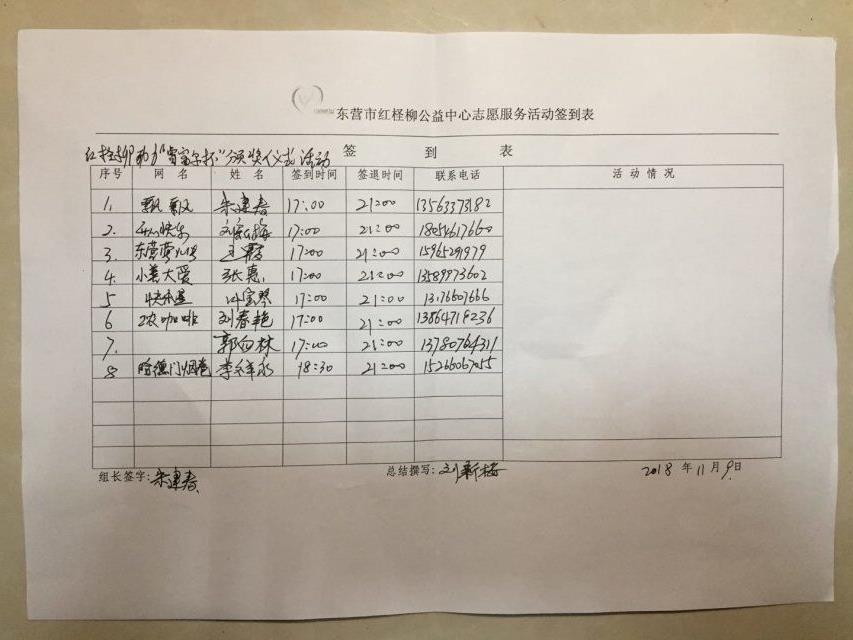 东营市红柽柳公益中心志愿服务活动签到表
红柽柳 颁奖仪式活动 签到表
序号 网名 姓名 签到时间 签退时间 联系电话 活动情况
1. 飘飘 朱建春 17:00 21:00 13563373182
2. 快乐 刘新梅 17:00 21:00 18054617660
3. 东营 王霞 17:00 21:00 15965291979
4. 小善大爱 张惠 17:00 21:00 13589973602
5 17:00 21:00 13176607666
6 浓咖啡 刘春艳 17:00 21:00 13864718236
7. 郭向林 17:00 21:00 13780764311
8 哈德门烟卷 18:30 21:00 15266067055
组长签字:朱建春 总结撰写:刘新梅 2018年11月9日